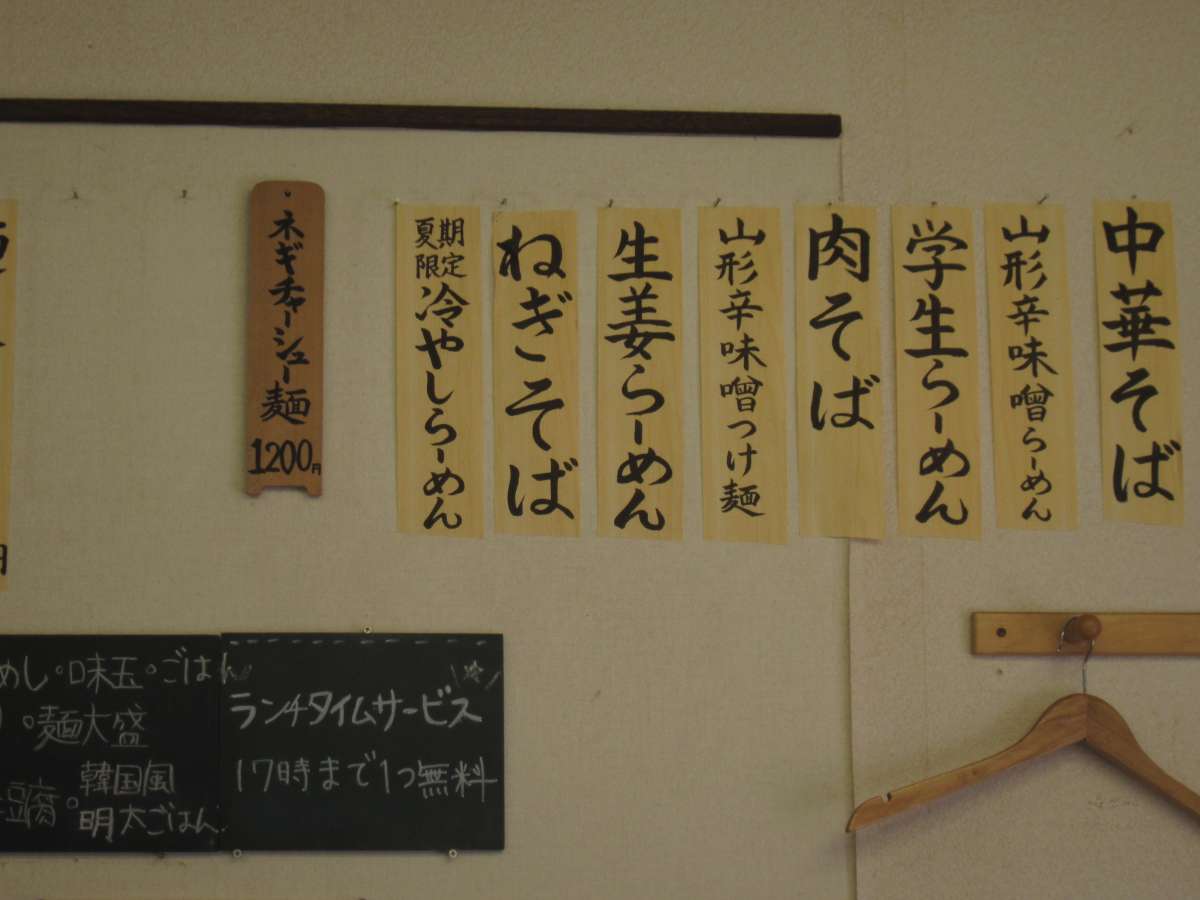 中華そば
山形辛味噌らーめん
学生らーめん
肉そば
山形辛味噌つけ麺
生姜らーめん
ねぎそば
夏期
限定
冷やしらーめん
ネギチャーシュー麺
1200円
円
めし・味玉・ごはん
・麺大盛
豆腐・韓国風
明太ごはん
ランチタイムサービス
17時まで1つ無料